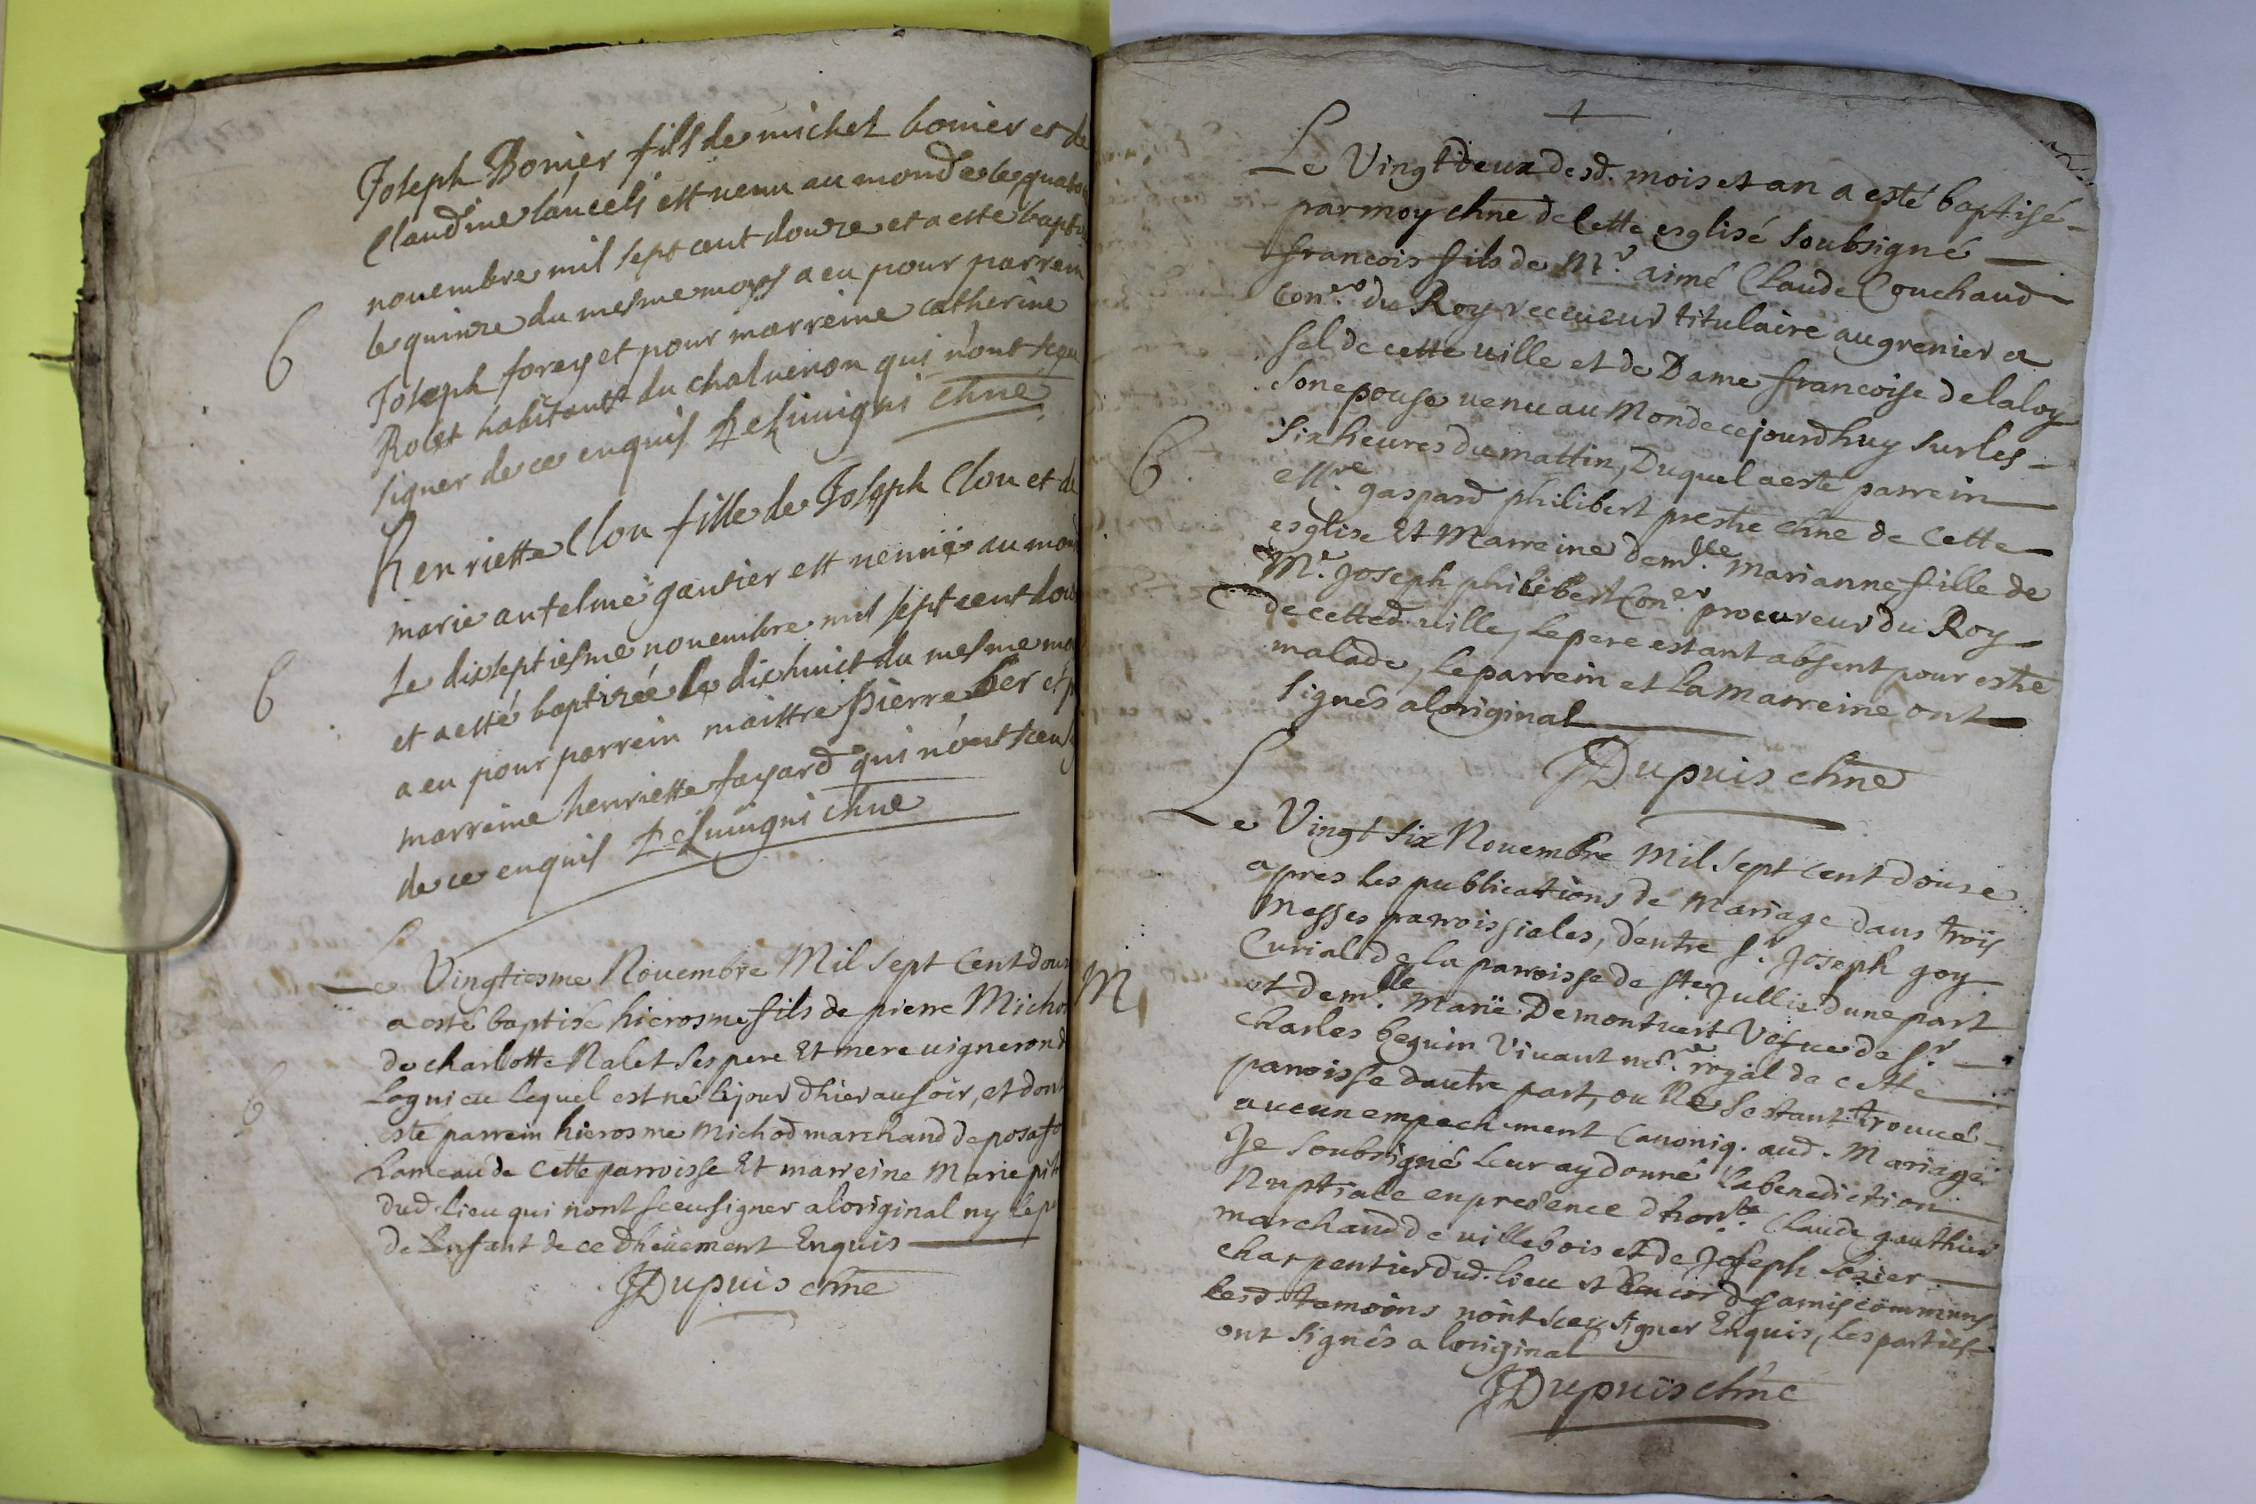 Joseph Bonier fils de michel bonier et de
Claudine lancels est venu au monde le quato
novembre mil sept cent douze et a esté bapti
le quinze du mesme moys a eu pour parrein
Joseph forey et pour marreine catherine
Rolet habitants du chalvenon qui n'ont sceu
signer de ce enquis chne
B
Henriette Clou fille de Joseph Clou et de
marie antelme gautier est venuë au mond
Le dixseptiesme novembre mil sept cent dou
et a esté baptizée le dixhuict du mesme mo
a eu pour parrein maittre pierre Ber et p
marreine henriette fayard qui n'ont sceu
de ce enquis chne
B
Le Vingtiesme Novembre Mil sept Cent douz
a esté baptisé hierosme fils de pierre Michod
de charlotte Nalet ses pere Et mere vigneron d
Lagnieu lequel est né le jour dhier au soir, et dont
esté parrein hierosme Michod marchand de posafo
hameau de Cette parroisse Et marreine Marie pi
dud. lieu qui nont sceu signer a loriginal ny le pe
de Lenfant de ce dheüement Enquis
B
JDupuis chne
Le Vingt deux desd. mois et an a esté baptisé
par moy chne de Cette esglise soubsigné
francois fils de Mr. aimé Claude Couchaud
Coner. du Roy receveur titulaire au grenier a
sel de cette ville et de Dame francoise delaloy
son epouse venu au Monde ce jourdhuy sur les
six heures du mattin, Duquel a esté parrein
Mre. gaspard philibert prestre chne de Cette
esglise Et Marreine demlle. marianne fille de
Mr. Joseph philibert Coner. procureur du Roy
de cetted. ville, Le pere estant absent pour estre
malade, Le parrein et La marreine ont
signés a loriginal
B
JDupuis chne
Le Vingt six Novembre Mil sept Cent douze
apres les publications de Mariage dans trois
Messes parroissiales, d'entre Sr. Joseph goy
Curial de la parroisse de ste. Jullie d'une part
et demlle. Marie Demontvert Vefue de Sr.
charles beguin Vivant nore. royal de cette
parroisse d'autre part, ou Ne sestant trouvé
aucun empechement Canoniq. aud. Mariage
Je soubsigné leur ay donné la benediction
Nuptiale en presence d'honble. Claude gauthier
marchand de villebois et de Joseph Lozier
charpentier dud. lieu et encor d amis communs
Lesd. temoins n'ont sceu signer Enquis, les parties
ont signés a loriginal
M
JDupuis chne